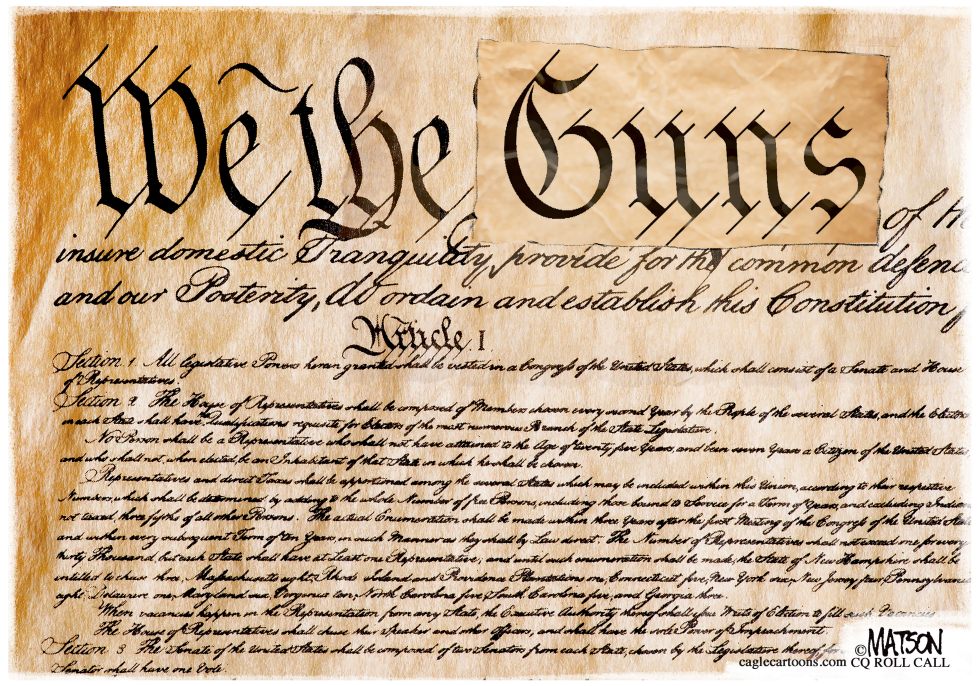 We the Guns
of th
insure domestic Tranquility, provide for the common defenc
and our Posterity, do ordain and establish this Constitution f
Article. I.
Section. 1. All legislative Powers herein granted shall be vested in a Congress of the United States, which shall consist of a Senate and House
of Representatives.
Section. 2. The House of Representatives shall be composed of Members chosen every second Year by the People of the several States, and the Electors
in each State shall have the Qualifications requisite for Electors of the most numerous Branch of the State Legislature.
No Person shall be a Representative who shall not have attained to the Age of twenty five Years, and been seven Years a Citizen of the United States,
and who shall not, when elected, be an Inhabitant of that State in which he shall be chosen.
Representatives and direct Taxes shall be apportioned among the several States which may be included within this Union, according to their respective
Numbers, which shall be determined by adding to the whole Number of free Persons, including those bound to Service for a Term of Years, and excluding Indians
not taxed, three fifths of all other Persons. The actual Enumeration shall be made within three Years after the first Meeting of the Congress of the United States,
and within every subsequent Term of ten Years, in such Manner as they shall by Law direct. The Number of Representatives shall not exceed one for every
thirty Thousand, but each State shall have at Least one Representative; and until such enumeration shall be made, the State of New Hampshire shall be
entitled to chuse three, Massachusetts eight, Rhode Island and Providence Plantations one, Connecticut five, New York six, New Jersey four, Pennsylvania
eight, Delaware one, Maryland six, Virginia ten, North Carolina five, South Carolina five, and Georgia three.
When vacancies happen in the Representation from any State, the Executive Authority thereof shall issue Writs of Election to fill such Vacancies.
The House of Representatives shall chuse their Speaker and other Officers; and shall have the sole Power of Impeachment.
Section. 3. The Senate of the United States shall be composed of two Senators from each State, chosen by the Legislature thereof, for
Senator shall have one Vote.
©MATSON
caglecartoons.com CQ ROLL CALL